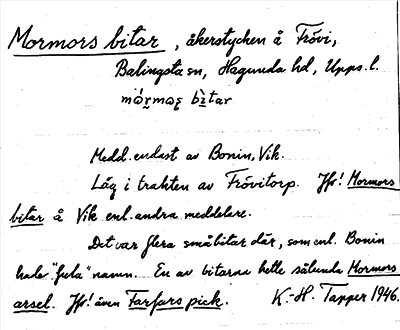 Mormors bitar, åkerstycken å Frövi,
Balingsta sn, Hagunda hd, Upps. l.
bìtar
Medd. endast av Bonin, Vik.
Låg i trakten av Frövitorp. Jfr! Mormors
bitar å Vik enl. andra meddelare.
Det var flera småbitar där, som enl. Bonin
hade "fula" namn. En av bitarna hette sålunda Mormors
arsel. Jfr! även Farfars pick. K.-H. Tapper 1946.